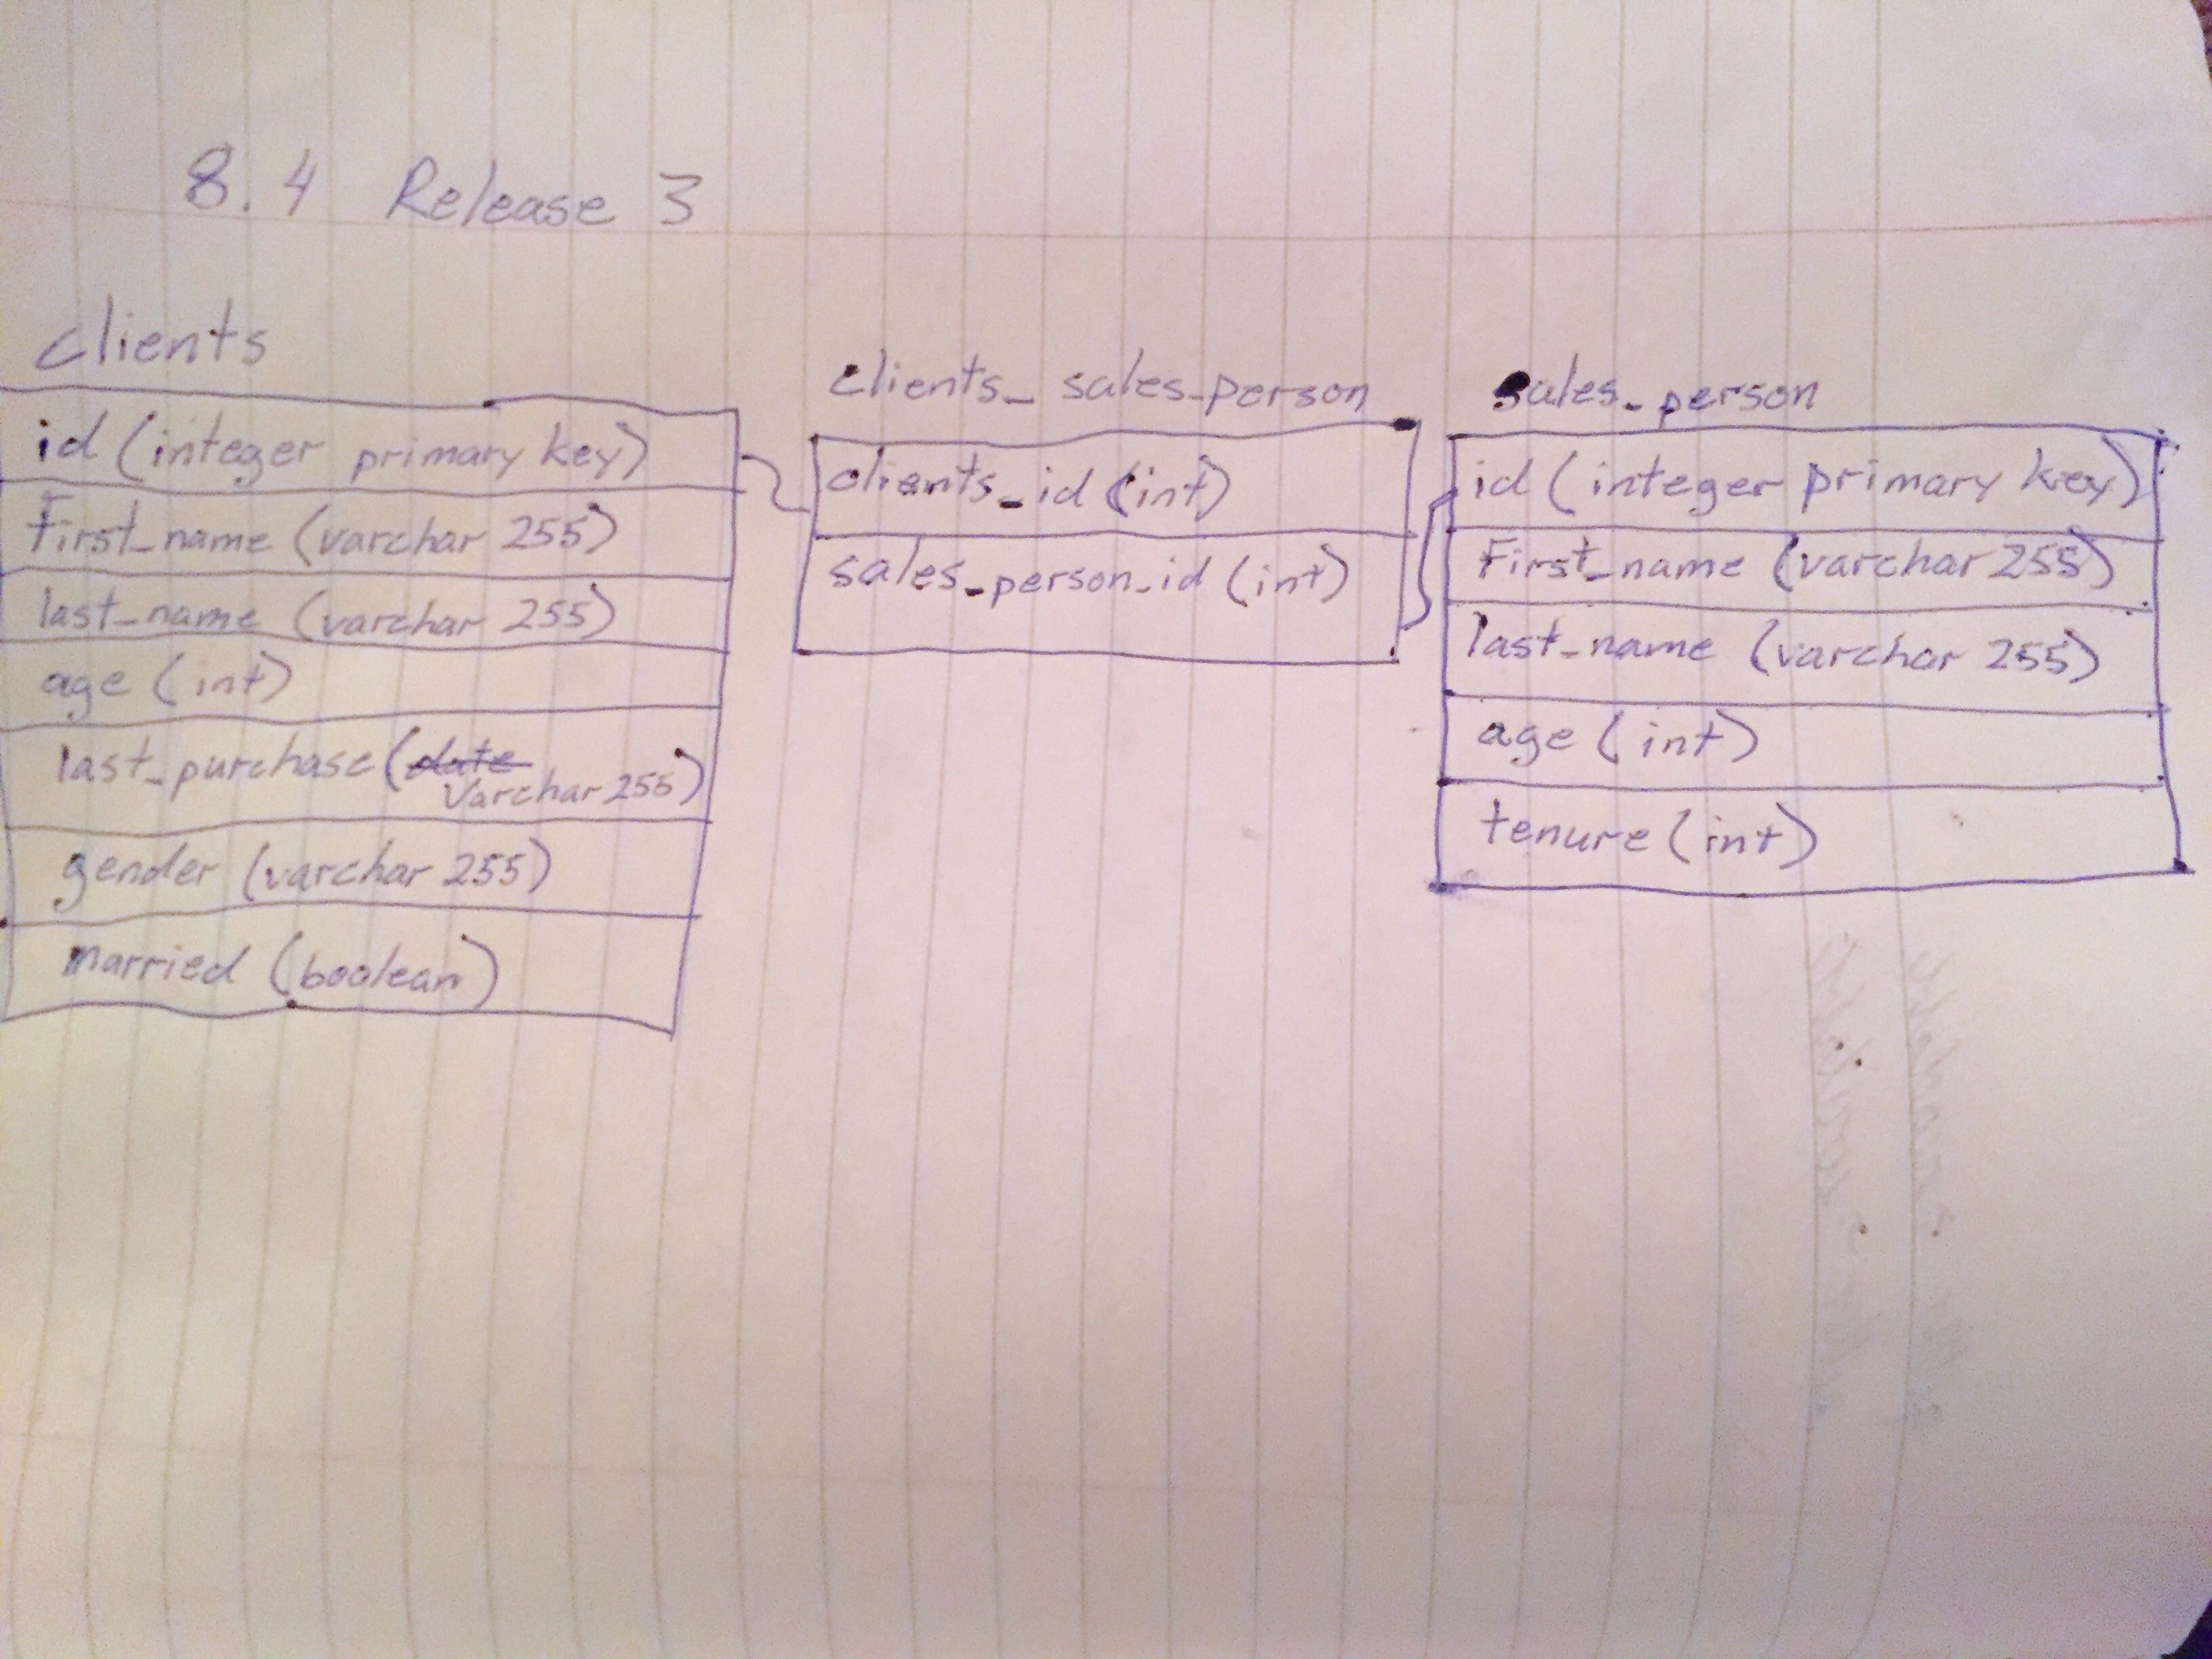 8.4 Release 3
clients
id (integer primary key)
First_name (varchar 255)
last_name (varchar 255)
age (int)
last_purchase (date
Varchar 255)
gender (varchar 255)
married (boolean)
clients_sales_person
clients_id (int)
sales_person_id (int)
sales_person
id (integer primary key)
First_name (varchar 255)
last_name (varchar 255)
age (int)
tenure (int)